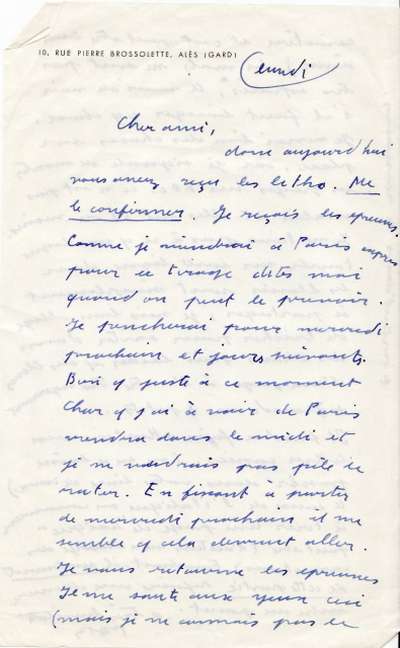 10, RUE PIERRE BROSSOLETTE, ALÈS (GARD)
Lundi
Cher ami,
donc aujourd'hui
vous avez reçu les litho. Me
le confirmer. Je reçois les épreuves.
Comme je viendrai à Paris exprès
pour ce tirage dites moi
quand on peut le prévoir.
Je pencherai pour mercredi
prochain et jours suivants.
q juste à ce moment
Char q j'ai à voir de Paris
viendra dans le midi et
je ne voudrais pas le
rater. En fixant à partir
de mercredi prochain il me
semble q cela devrait aller.
Je vous retourne les épreuves
Je me saute aux yeux ceci
(mais je ne connais pas le